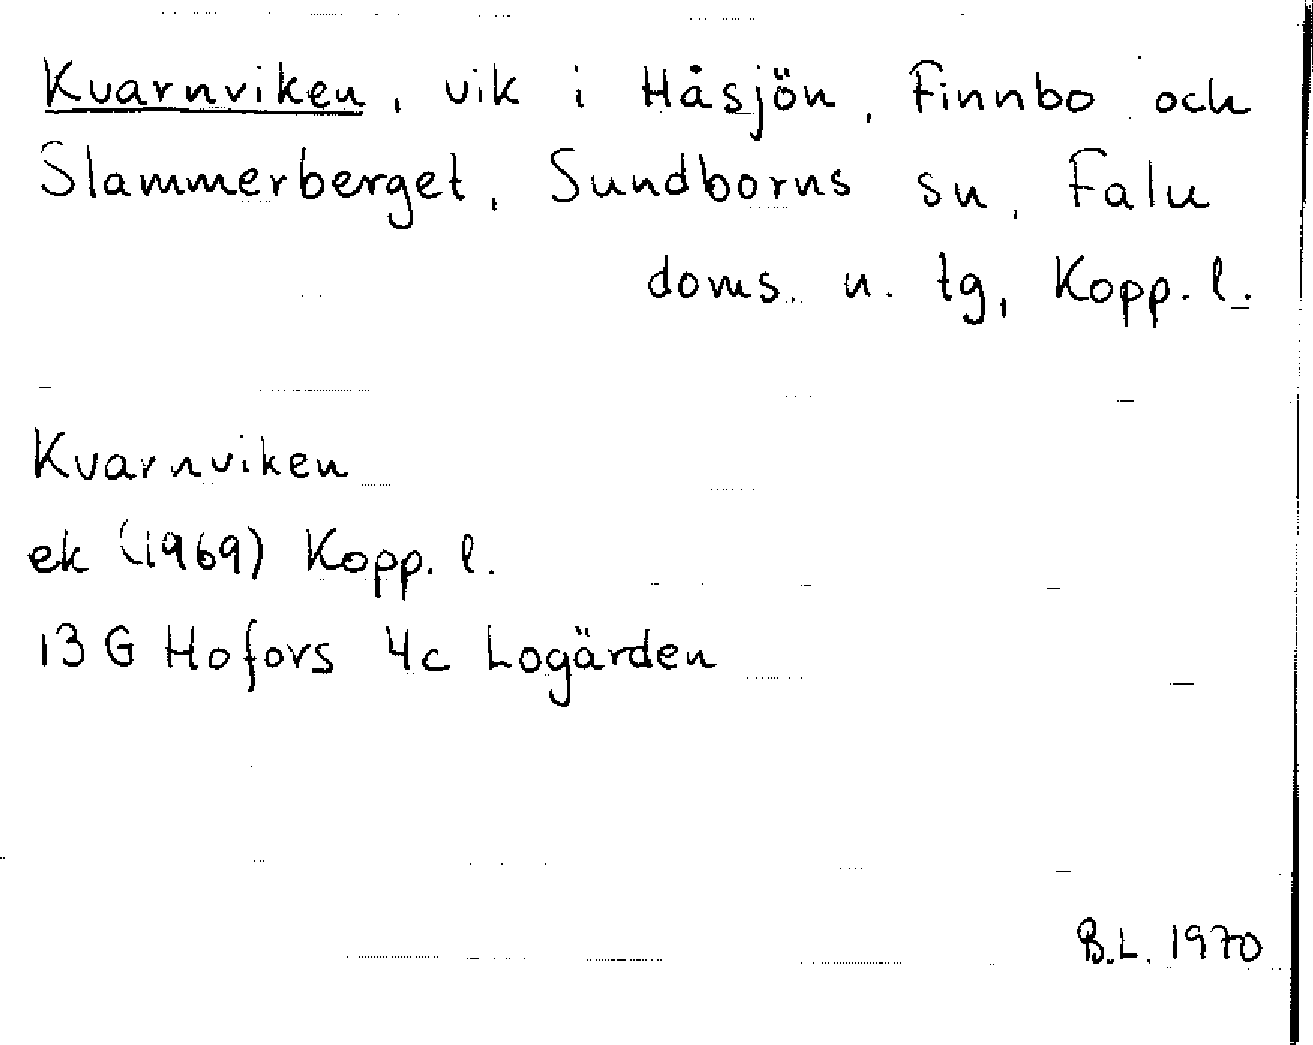 Kvarnviken, vik i Håsjön, Finnbo och
Slammerberget, Sundborns sn, Falu
doms. n. tg, Kopp. l.
Kvarnviken
ek (1969) Kopp. l.
13 G Hofors 4c Logärden
B.L. 1970